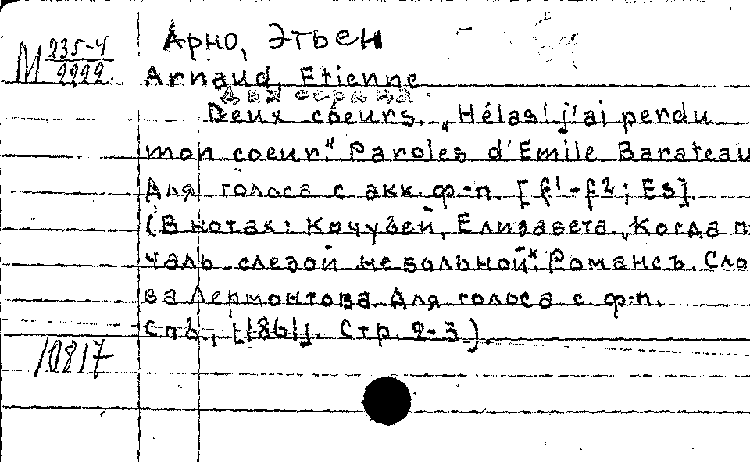 Арно, Этьен
М 235-4
2222
Arnaud, Etienne
Два сердца.
Deux coeurs. „Hélas! j'ai perdu
mon coeur." Paroles d'Emile Barateau
Для голоса с акк. ф-п. [f¹-f²; Es].
(В нотах: Кочубей, Елизавета. „Когда п
чаль слезой невольной". Романсъ. Сло
ва Лермонтова. Для голоса с ф-п.
Спб., [1861]. Стр. 2-3).
10817